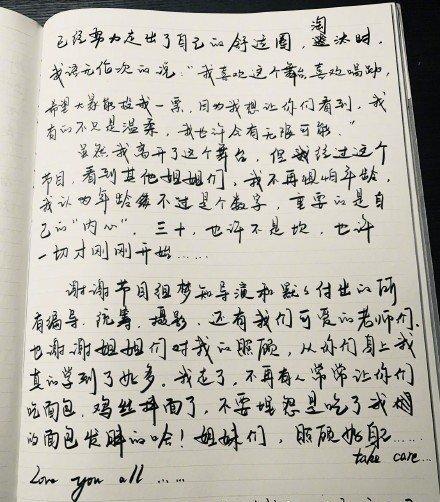 已经努力走出了自己的舒适圈，淘汰时，
我语无伦次的说："我喜欢这个舞台，喜欢唱跳，
希望大家能投我一票，因为我想让你们看到，我
有的不只是温柔，我也许会有无限可能。"
虽然我离开了这个舞台，但我经过这个
节目，看到其他姐姐们，我不再惧怕年龄，
我认为年龄不过是个数字，重要的是自
己的"内心"，三十，也许不是坎，也许
一切才刚刚开始……
谢谢节目组梦知导演和默默付出的所
有编导、统筹、摄影、还有我们可爱的老师们，
也谢谢姐姐们对我的照顾，从你们身上我
真的学到了好多，我走了，不再有人常常让你们
吃面包，鸡丝拌面了，不要埋怨是吃了我
的面包发胖的哈！姐妹们，照顾好自己……
take care…
Love you all ……